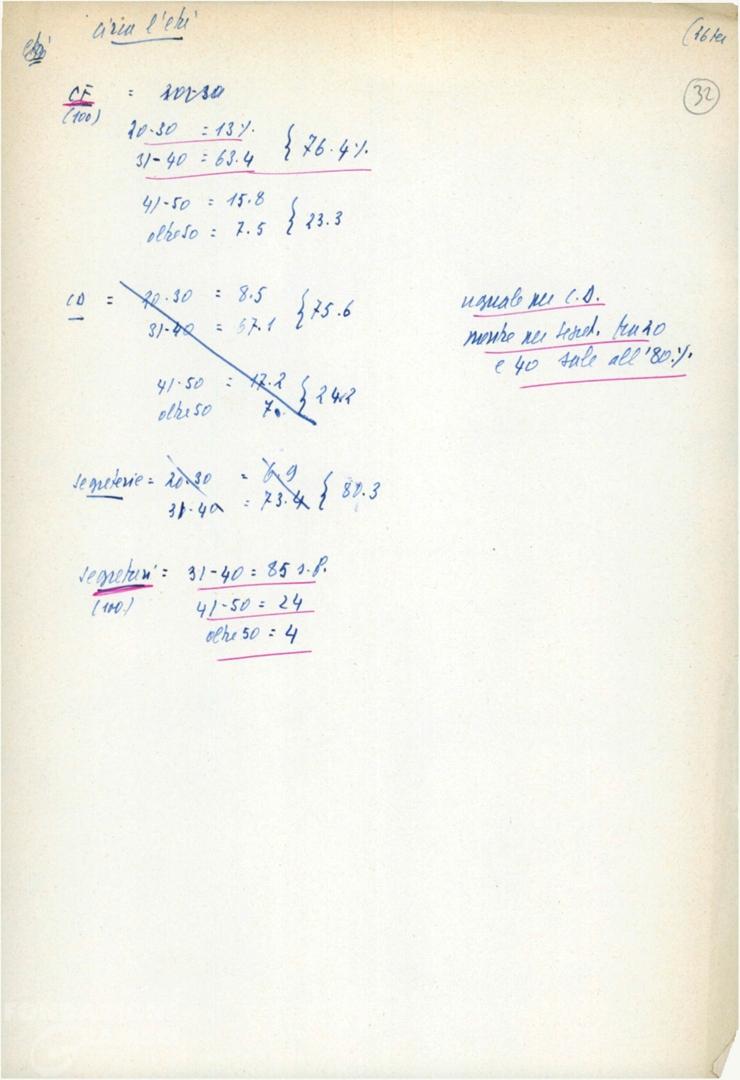 età circa l'età (16 ter
32
CF = 20-30
(100)
20-30 = 13%.
31-40 = 63.4 { 76.4%.
41-50 = 15.8
oltre 50 = 7.5 { 23.3
CD = 20-30 = 8.5 { 75.6
31-40 = 67.1
41-50 = 17.2 { 24.2
oltre 50 7.
uguale nei C.D.
mentre nei segret. tra 20
e 40 sale all'80%.
segreterie = 20-30 = 6.9
31-40 = 73.4 { 80.3
segretari = 31-40 = 85 s.f.
(100)
41-50 = 24
oltre 50 = 4
FONDAZIONE